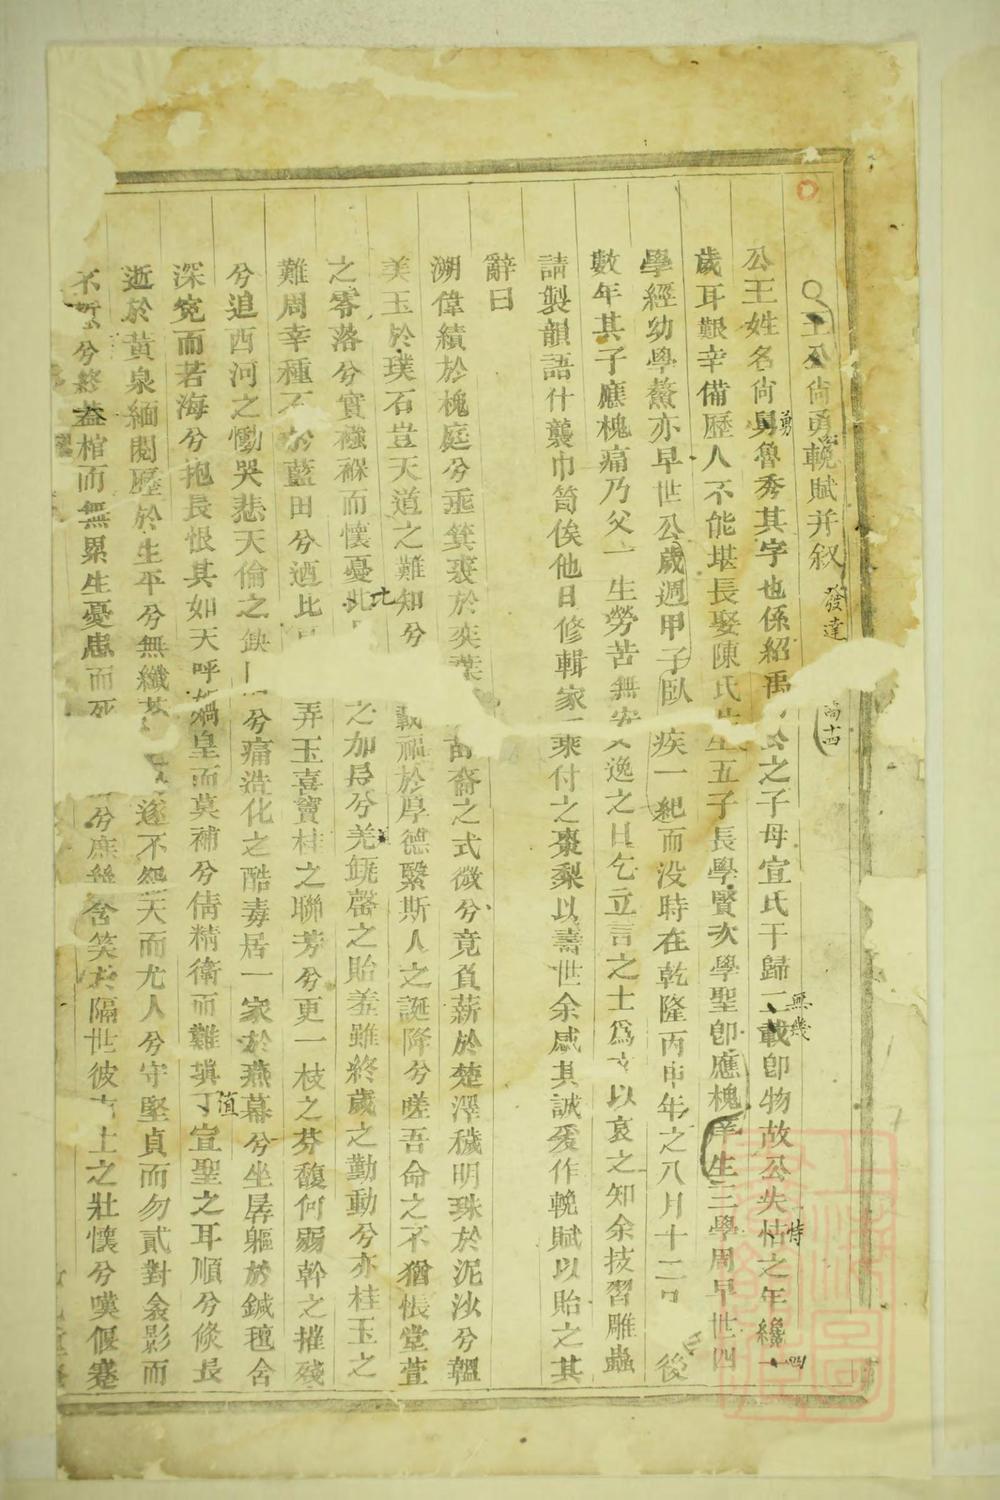 王公尙勇輓賦并叙
發達
公王姓名尙勇魯秀其字也係紹禹公之子母宣氏于歸二載卽物故公失怙之年纔一
歲耳艱辛備歷人不能堪長娶陳氏生五子長學賢次學聖卽應槐幸生三學周早世四
學經幼學鰲亦早世公歲週甲子臥疾一紀而没時在乾隆丙申年之八月十二日後
數年其子應槐痛乃父一生勞苦無安逸之日乞立言之士爲文以哀之知余技習雕蟲
請製韻語什襲巾笥俟他日修輯家乘付之棗梨以壽世余感其誠爰作輓賦以貽之其
辭曰
溯偉績於槐庭兮垂箕裘於奕葉苗裔之式微兮竟負薪於楚澤穢明珠於泥沙兮韞
美玉於璞石豈天道之難知兮載福於厚德緊斯人之誕降兮嗟吾命之不猶悵堂萱
之零落兮實襁褓而懷憂之加長兮羌缾罄之貽羞雖終歲之勤動兮亦桂玉之
難周幸種玉於藍田兮迺比弄玉喜竇桂之聯芳兮更一枝之芬馥何弱幹之摧殘
兮追西河之慟哭悲天倫之缺兮痛造化之酷毒居一家於燕幕兮坐孱軀於鍼氊含
深寃而若海兮抱長恨其如天呼媧皇而莫補兮倩精衛而難塡宣聖之耳順兮倏長
逝於黃泉緬閱歷於生平兮無纖遂不怨天而尤人兮守堅貞而勿貳對衾影而
不兮終蓋棺而無累生憂患而死兮庶含笑於隔世彼之壯懷兮嘆偃蹇